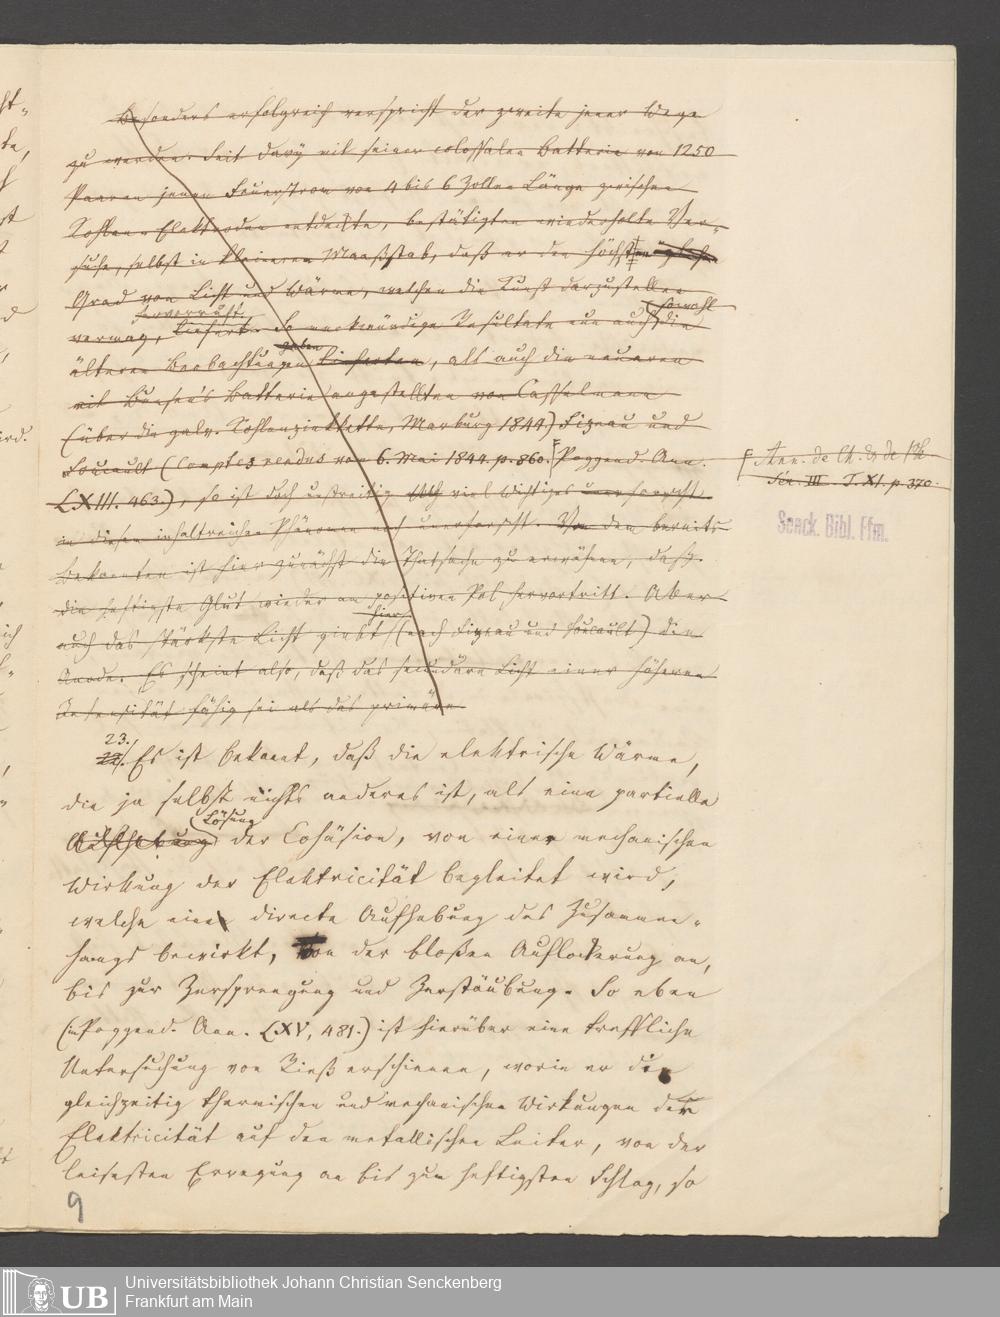 Besonders erfolgreich verspricht der zweite jener Wege
zu werden. Seit Davy mit seiner colossalen Batterie von 1250
Paaren jenen Feuerstrom von 4 bis 6 Zollen Länge zwischen
Kohlen-Elektroden entdeckte, bestätigten wiederholte Ver-
suche, selbst in kleinerem Maaßstab, daß er den höchsten
Grad von Licht und Wärme, welchen die Kunst darzustellen
vermag, liefert. hervorruft. So merkwürdige Resultate nun auch sowohl die
älteren Beobachtungen lieferten geben, als auch die neueren
mit Bunsen's Batterie angestellten von Casselmann
(über die galv. Kohlenzinkkette, Marburg 1844) Fizeau und
Foucault (Comptes rendus vom 6. Mai 1844. p. 860. Poggend. Ann.
Ann. de Ch. & de Ph.
Sér. III. T. XI. p. 370.
LXIII. 463), so ist doch unstreitig viel Wichtiges unerforscht
in diesem inhaltreichen Phänomen noch unerforscht. Von dem bereits
Bekannten ist hier zunächst die Thatsache zu erwähnen, daß
die heftigste Glut wieder am positiven Pol hervortritt. Aber
auch das stärkste Licht giebt hier (nach Fizeau und Foucault) die
Anode. Es scheint also, daß das secundäre Licht einer höheren
Intensität fähig sei als das primäre.
Senck. Bibl. Ffm.
23.
22. Es ist bekannt, daß die elektrische Wärme,
die ja selbst nichts anderes ist, als eine partielle
Aufhebung Lösung der Cohäsion, von einer mechanischen
Wirkung der Elektricität begleitet wird,
welche eine directe Aufhebung des Zusammen-
hangs bewirkt, von der bloßen Auflockerung an,
bis zur Zersprengung und Zerstäubung. So eben
(in Poggend. Ann. LXV, 481.) ist hierüber eine treffliche
Untersuchung von Rieß erschienen, worin er die
gleichzeitig thermischen und mechanischen Wirkungen der
Elektricität auf den metallischen Leiter, von der
leisesten Erregung an bis zum heftigsten Schlag, so
9
UB
Universitätsbibliothek Johann Christian Senckenberg
Frankfurt am Main